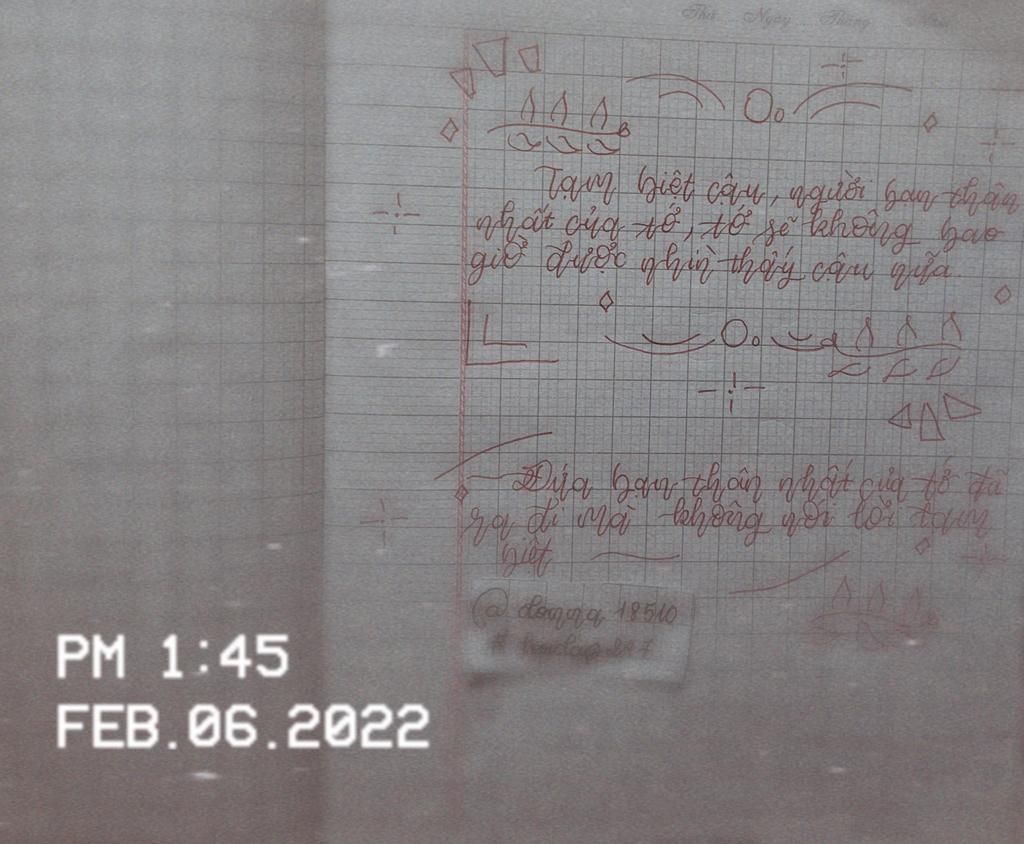 Thứ Ngày Tháng Năm
Tạm biệt cậu, người bạn thân
nhất của tớ, tớ sẽ không bao
giờ được nhìn thấy cậu nữa
Đứa bạn thân nhất của tớ đã
ra đi mà không nói lời tạm
biệt
18510
PM 1:45
FEB.06.2022